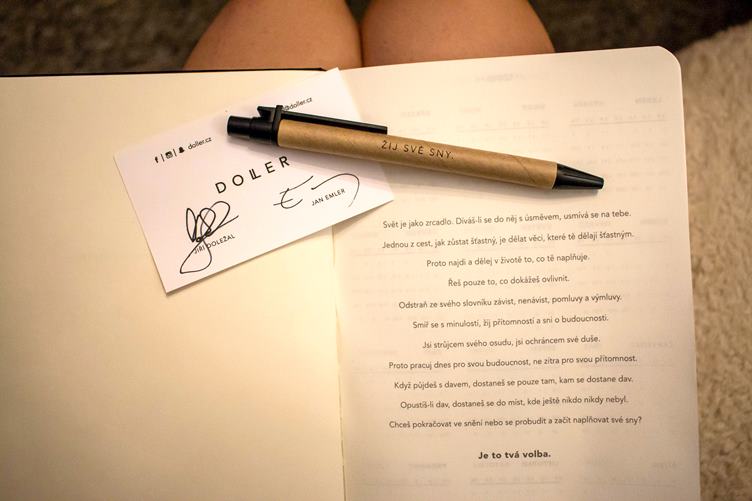 @doller.cz
doller.cz
DOLLER
JIŘÍ DOLEŽAL
JAN EMLER
ŽIJ SVÉ SNY.
Svět je jako zrcadlo. Díváš-li se do něj s úsměvem, usmívá se na tebe.
Jednou z cest, jak zůstat šťastný, je dělat věci, které tě dělají šťastným.
Proto najdi a dělej v životě to, co tě naplňuje.
Řeš pouze to, co dokážeš ovlivnit.
Odstraň ze svého slovníku závist, nenávist, pomluvy a výmluvy.
Smiř se s minulostí, žij přítomností a sni o budoucnosti.
Jsi strůjcem svého osudu, jsi ochráncem své duše.
Proto pracuj dnes pro svou budoucnost, ne zítra pro svou přítomnost.
Když půjdeš s davem, dostaneš se pouze tam, kam se dostane dav.
Opustíš-li dav, dostaneš se do míst, kde ještě nikdo nikdy nebyl.
Chceš pokračovat ve snění nebo se probudit a začít naplňovat své sny?
Je to tvá volba.